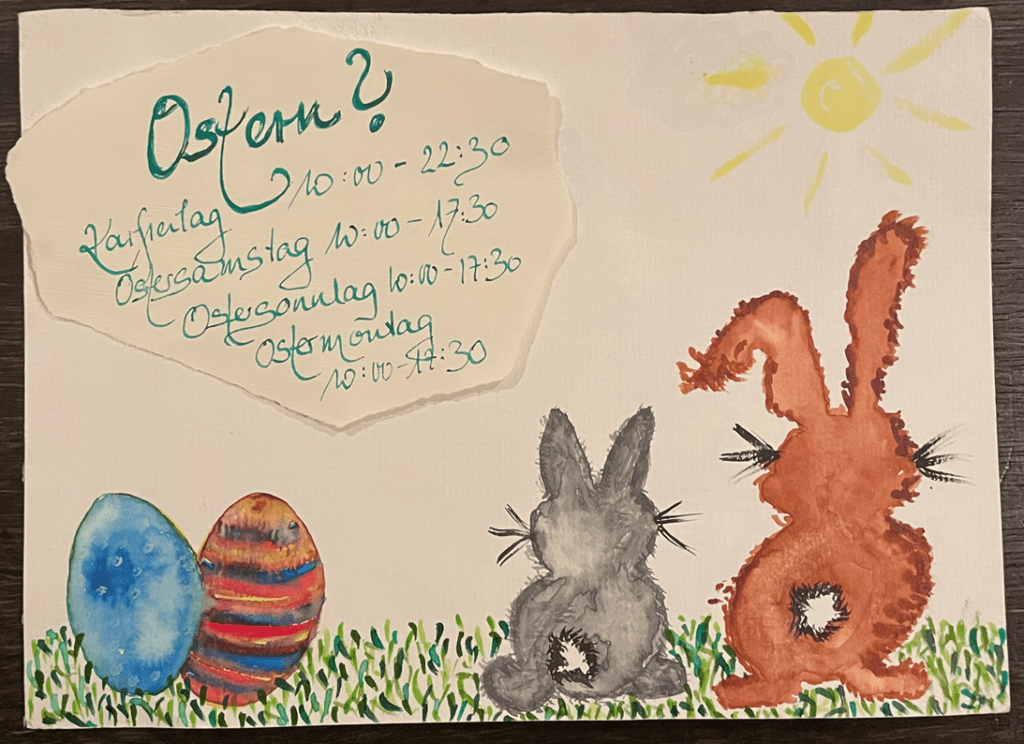 Ostern?
Karfreitag 10:00 - 22:30
Ostersamstag 10:00 - 17:30
Ostersonntag 10:00 - 17:30
Ostermontag
10:00 - 17:30